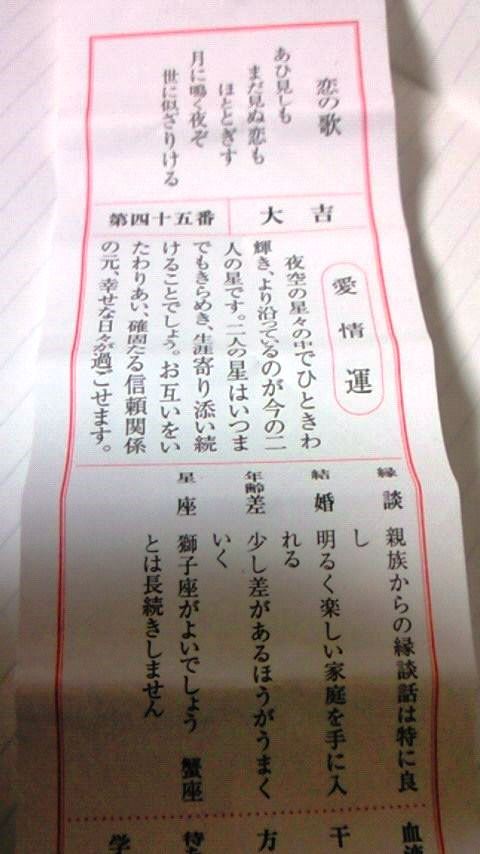 恋の歌
あひ見しも
まだ見ぬ恋も
ほととぎす
月に鳴く夜ぞ
世に似ざりける
大吉
第四十五番
愛情運
夜空の星々の中でひときわ
輝き、より沿っているのが今の二
人の星です。二人の星はいつま
でもきらめき、生涯寄り添い続
けることでしょう。お互いをい
たわりあい、確固たる信頼関係
の元、幸せな日々が過ごせます。
縁談 親族からの縁談話は特に良
し
結婚 明るく楽しい家庭を手に入
れる
年齢差 少し差があるほうがうまく
いく
星座 獅子座がよいでしょう 蟹座
とは長続きしません
血液
干
方
待
学